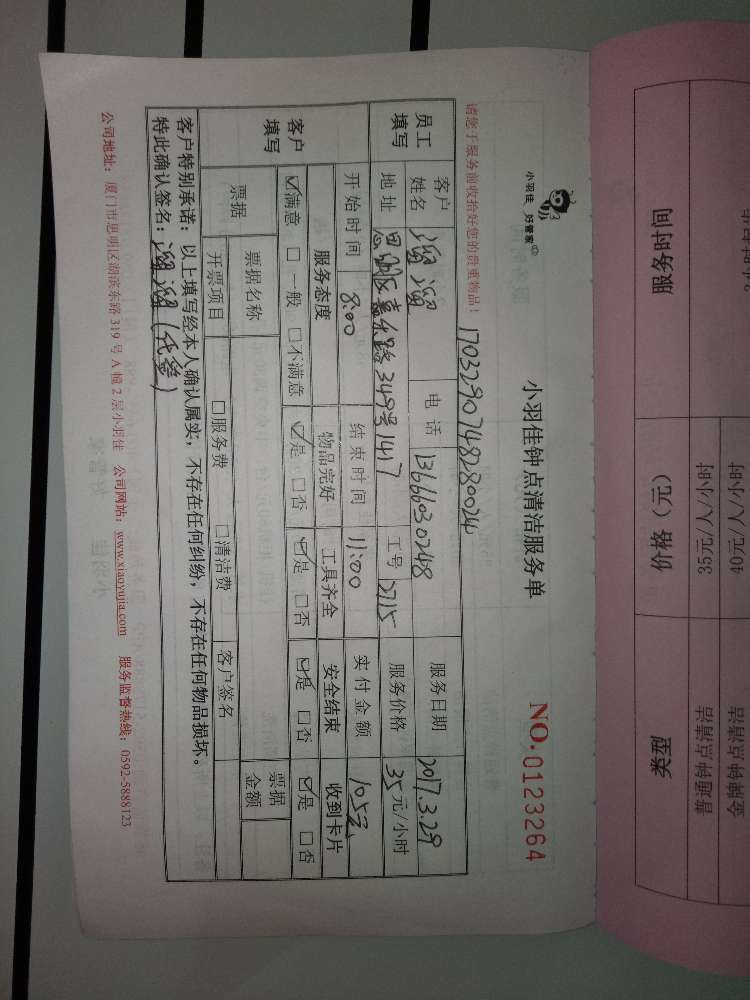 小羽佳 好管家
小羽佳钟点清洁服务单
NO.0123264
请您于服务前收拾好您的贵重物品！
1703290748280024
员工填写
客户姓名 溜溜 电话 13666030248 服务日期 2017.3.29
地址 思明区嘉禾路349号1417 工号 2715 服务价格 35元/小时
客户填写
开始时间 8:00 结束时间 11:00 实付金额 105元
服务态度 物品完好 工具齐全 安全结束 收到卡片
☑满意 □一般 □不满意 ☑是 □否 ☑是 □否 ☑是 □否 ☑是 □否
票据 票据名称 票据金额
开票项目 □服务费 □清洁费 客户签名
客户特别承诺：以上填写经本人确认属实，不存在任何纠纷，不存在任何物品损坏。
特此确认签名：溜溜（代签）
公司地址：厦门市思明区湖滨东路319号A幢2层小羽佳 公司网站：www.xiaoyujia.com 服务监督热线：0592-5888123
服务时间
价格（元） 35元/人/小时 40元/人/小时
类型 普通钟点清洁 金牌钟点清洁